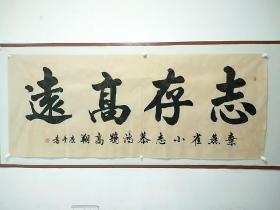 志存高遠
棄燕雀小志慕鴻鵠高翔